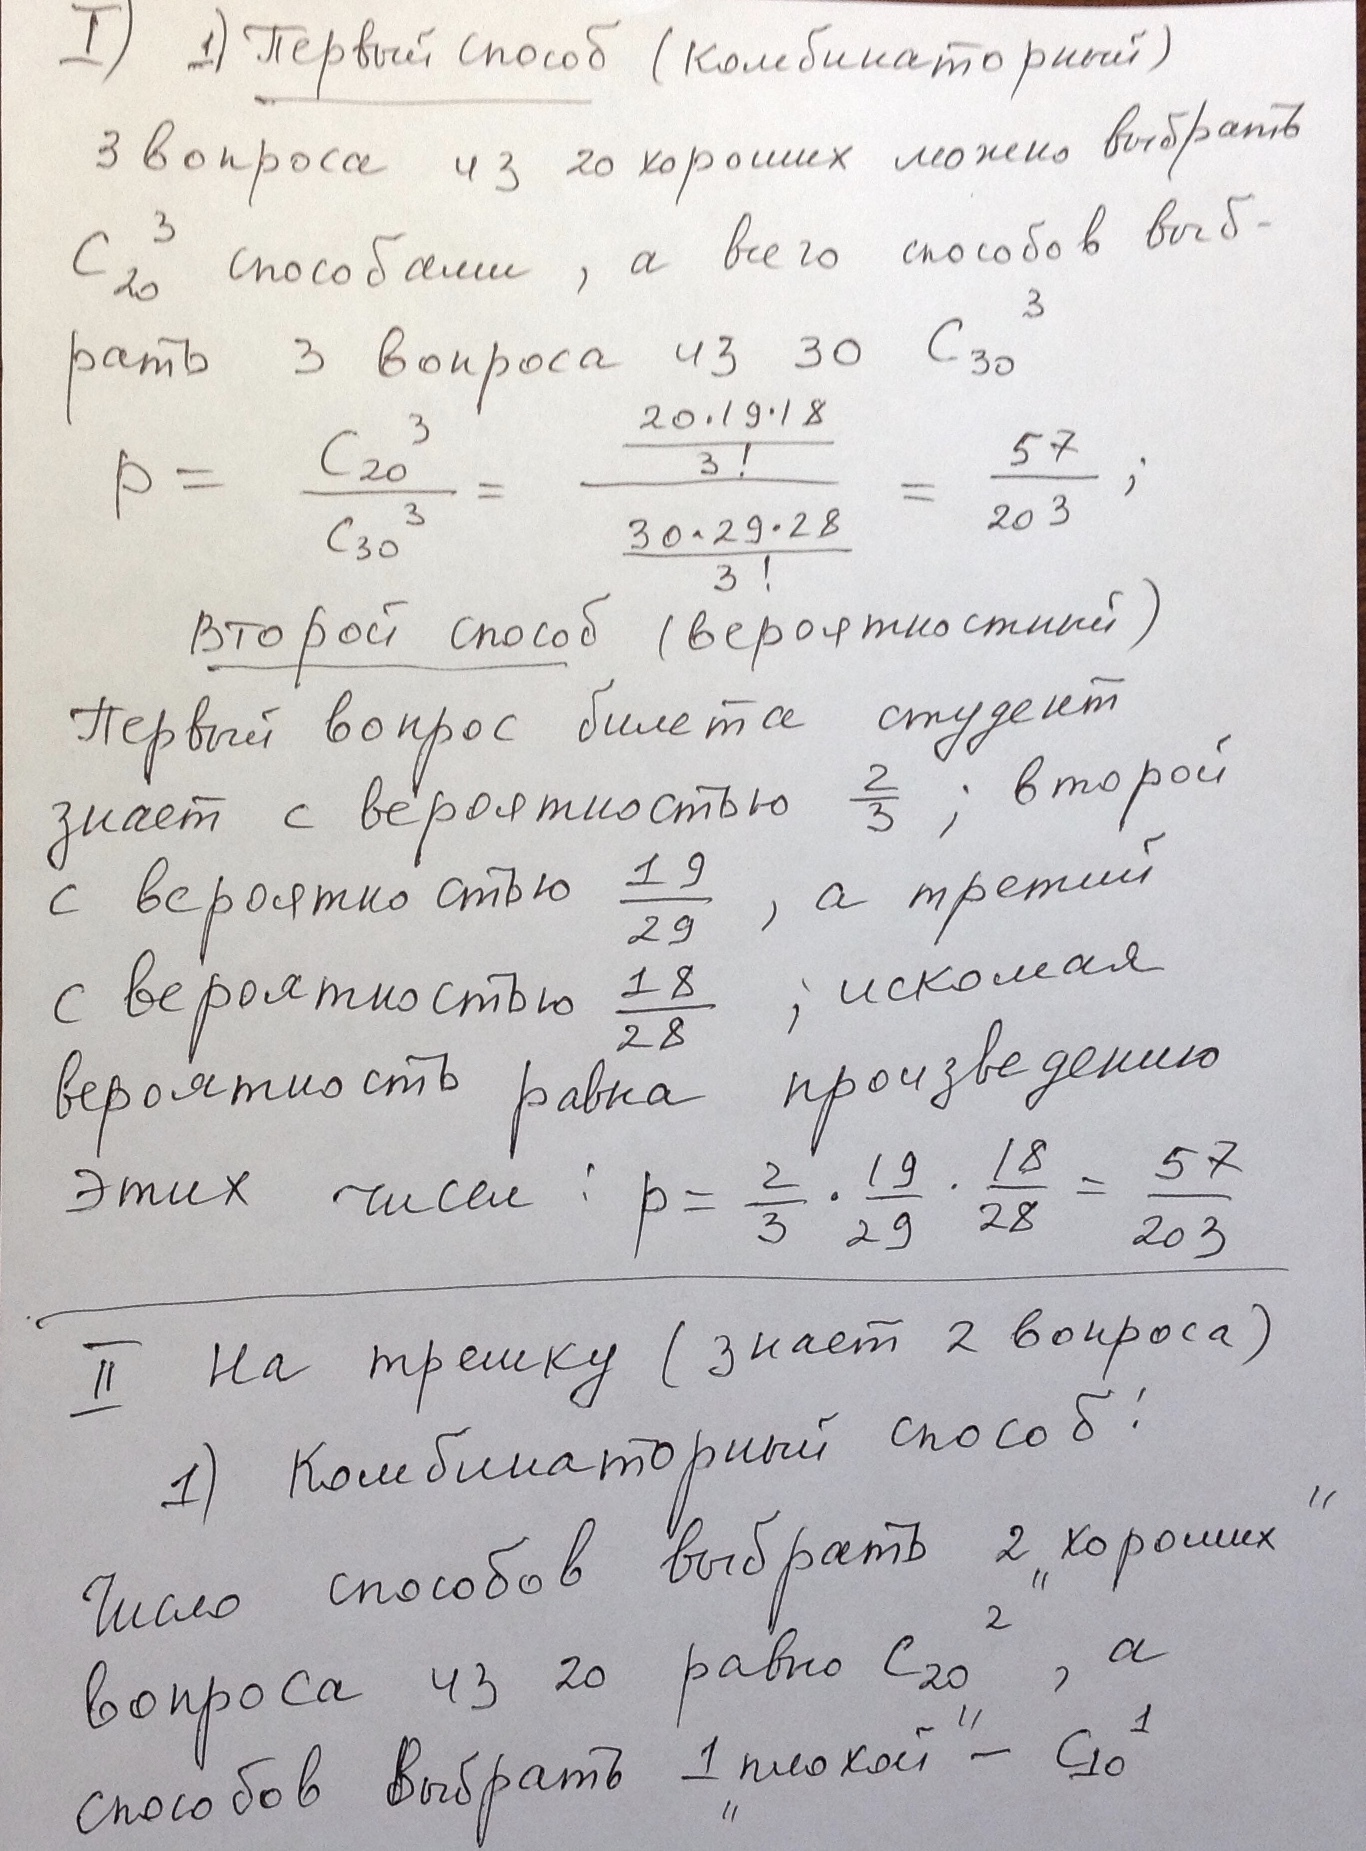 I) 1) Первый способ (комбинаторный)
3 вопроса из 20 хороших можно выбрать
C₂₀³ способами, а всего способов выб-
рать 3 вопроса из 30 C₃₀³
p = C₂₀³ / C₃₀³ = (20·19·18 / 3!) / (30·29·28 / 3!) = 57/203;
Второй способ (вероятностный)
Первый вопрос билета студент
знает с вероятностью 2/3; второй
с вероятностью 19/29, а третий
с вероятностью 18/28; искомая
вероятность равна произведению
этих чисел: p = 2/3 · 19/29 · 18/28 = 57/203
II На трешку (знает 2 вопроса)
1) Комбинаторный способ:
Число способов выбрать 2 „хороших"
вопроса из 20 равно C₂₀², а
способов выбрать 1 „плохой" – C₁₀¹